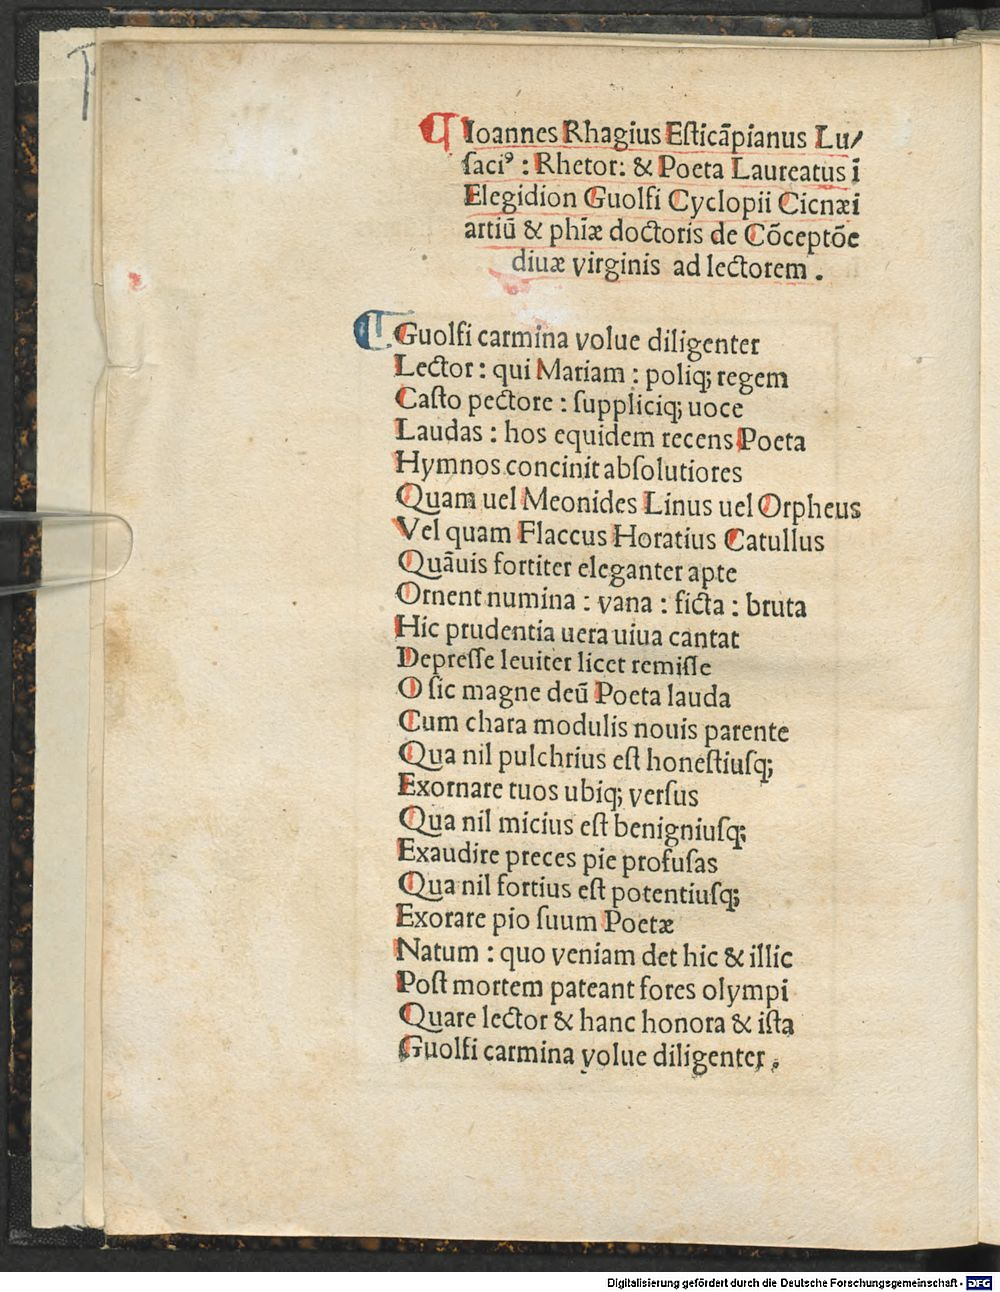 ¶ Ioannes Rhagius Esticãpianus Lu/
saciꝰ : Rhetor: & Poeta Laureatus ĩ
Elegidion Guolfi Cyclopii Cicnæi
artiũ & phĩæ doctoris de Cõceptõe
diuæ virginis ad lectorem .
¶ Guolfi carmina volue diligenter
Lector : qui Mariam : poliqꝫ regem
Casto pectore : suppliciqꝫ uoce
Laudas : hos equidem recens Poeta
Hymnos concinit absolutiores
Quam uel Meonides Linus uel Orpheus
Vel quam Flaccus Horatius Catullus
Quãuis fortiter eleganter apte
Ornent numina : vana : ficta : bruta
Hic prudentia uera uiua cantat
Depresse leuiter licet remisse
O sic magne deũ Poeta lauda
Cum chara modulis nouis parente
Qua nil pulchrius est honestiusqꝫ
Exornare tuos ubiqꝫ versus
Qua nil micius est benigniusqꝫ
Exaudire preces pie profusas
Qua nil fortius est potentiusqꝫ
Exorare pio suum Poetæ
Natum : quo veniam det hic & illic
Post mortem pateant fores olympi
Quare lector & hanc honora & ista
Guolfi carmina volue diligenter .
Digitalisierung gefördert durch die Deutsche Forschungsgemeinschaft - DFG